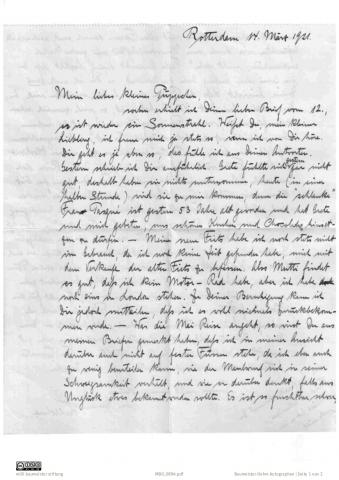 Rotterdam 14. März 1921.
Mein liebes kleines
soeben erhielt ich Deinen lieben Brief vom 12.,
es ist wieder ein Sonnenstrahl. Weißt Du, mein kleiner
Liebling, ich freue mich ja stets so, wenn ich von Dir höre.
Dir geht es ja eben so, das fühle ich aus Deinen Antworten.
Gestern schrieb ich Dir ausführlich. Grete fühlte sich gestern gar nicht
gut, deshalb haben wir nichts unternommen, heute (in einer
halben Stunde) wird sie zu mir kommen, denn die "schlanke"
Frau ist gestern 53 Jahre alt geworden und hat Grete
und mich gebeten, uns schönen Kuchen und Chocolade
zu dürfen. — Mein neues habe ich noch stets nicht
im Gebrauch, da ich noch keine Zeit gefunden habe, mich mit
dem Verkaufe des alten zu befassen. Also Mutti findet
es gut, daß ich kein Motor-Rad habe, aber ich habe doch
noch eins in London stehen. Zu Deiner Beruhigung kann ich
Dir jedoch mitteilen, daß ich es wohl niemals zurückbekom-
men werde. — Was die Mai Reise angeht, so wirst Du aus
meinen Briefen gemerkt haben, daß ich in meiner Ansicht
darüber auch nicht auf festen Füssen stehe, da ich eben auch
zu wenig beurteilen kann, wie der sich in seiner
Schweigsamkeit verhält, und wie er darüber denkt, falls
Unglück etwas bekannt werden sollte. Es ist so furchtbar schwer,
wilfi baumeister stiftung
Baumeister-Rehm Autographen | Seite 1 von 2